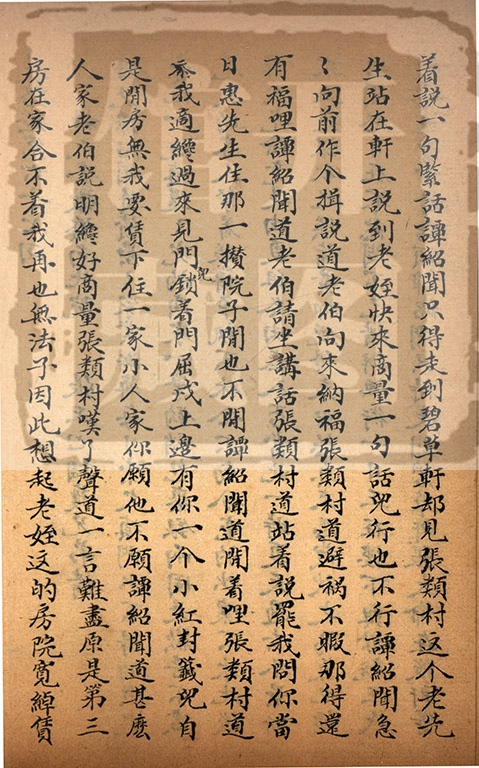 着説一句緊話譚紹聞只得走到碧草軒却見張類村这个老先
生站在軒上説到老姪快來商量一句話兒行也不行譚紹聞急
〻向前作个揖説道老伯向來納福張類村道避祸不暇那得還
有福哩譚紹聞道老伯請坐講話張類村道站着説罷我問你當
日惠先生住那一攅院子閒也不閒譚紹聞道閒着哩張類村道
我適纔過來見門兒鎖着門屈戌上邊有你一个小紅封籤兒自
是閒房無我要賃下住一家小人家你願他不願譚紹聞道甚麽
人家老伯説明纔好商量張類村嘆了聲道一言難盡原是第三
房在家合不着我再也無法子因此想起老姪这的房院寛綽賃